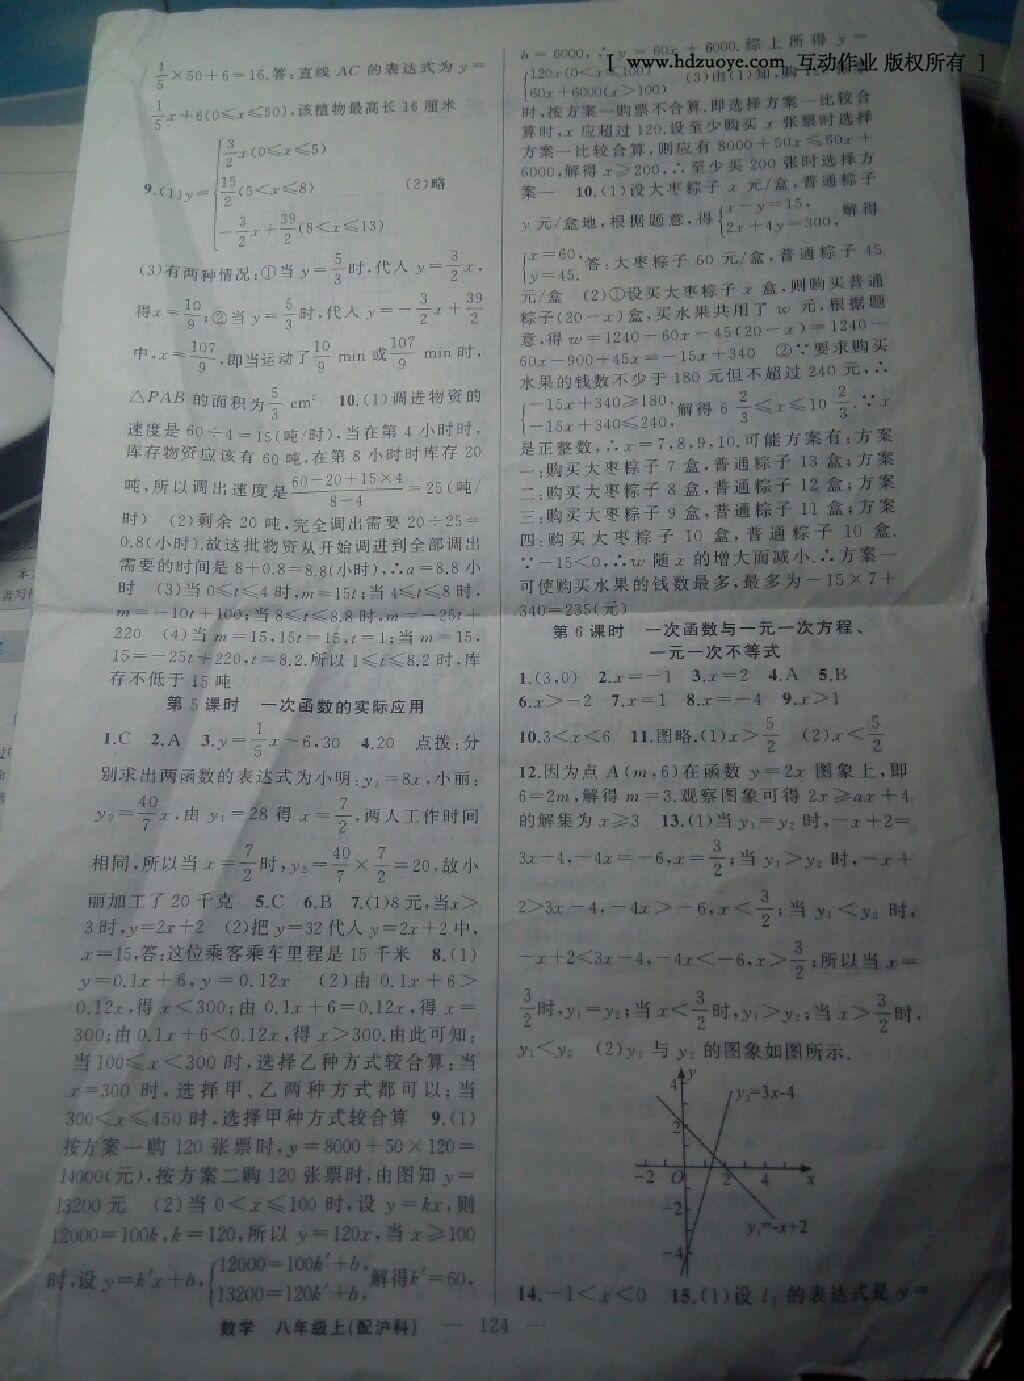 1/5×50+6=16.答:直线 AC 的表达式为 y=
1/5x+6(0≤x≤50),该植物最高长 16 厘米
9.(1)y={3/2x(0≤x≤5)
15/2(5<x≤8)
-3/2x+39/2(8<x≤13) (2)略
(3)有两种情况:①当 y=5/3时,代入 y=3/2x,
得x=10/9;②当 y=5/3时,代入 y=-3/2x+39/2
中,x=107/9,即当运动了10/9 min 或107/9 min 时,
△PAB 的面积为5/3 cm² 10.(1)调进物资的
速度是 60÷4=15(吨/时),当在第 4 小时时,
库存物资应该有 60 吨,在第 8 小时时库存 20
吨,所以调出速度是(60-20+15×4)/(8-4)=25(吨/
时) (2)剩余 20 吨,完全调出需要 20÷25=
0.8(小时).故这批物资从开始调进到全部调出
需要的时间是 8+0.8=8.8(小时),∴a=8.8 小
时 (3)当 0≤t≤4 时,m=15t;当 4≤t≤8 时,
m=-10t+100;当 8≤t≤8.8 时,m=-25t+
220 (4)当 m=15,15t=15,t=1;当 m=15,
15=-25t+220,t=8.2.所以 1≤t≤8.2 时,库
存不低于 15 吨
第 5 课时 一次函数的实际应用
1.C 2.A 3.y=1/5x-6,30 4.20 点拨:分
别求出两函数的表达式为小明:y₁=8x,小丽:
y₂=40/7x,由 y₁=28 得 x=7/2,两人工作时间
相同,所以当 x=7/2时,y₂=40/7×7/2=20,故小
丽加工了 20 千克 5.C 6.B 7.(1)8 元,当x>
3 时,y=2x+2 (2)把 y=32 代入 y=2x+2 中,
x=15,答:这位乘客乘车里程是 15 千米 8.(1)
y=0.1x+6,y=0.12x (2)由 0.1x+6>
0.12x,得 x<300;由 0.1x+6=0.12x,得 x=
300;由 0.1x+6<0.12x,得 x>300.由此可知:
当 100≤x<300 时,选择乙种方式较合算;当
x=300 时,选择甲、乙两种方式都可以;当
300<x≤450 时,选择甲种方式较合算 9.(1)
按方案一购 120 张票时,y=8000+50×120=
14000(元),按方案二购 120 张票时,由图知 y=
13200 元 (2)当 0<x≤100 时,设 y=kx,则
12000=100k,k=120,所以 y=120x,当 x≥100
时,设 y=k′x+b,{12000=100k′+b,
13200=120k′+b, 解得k′=60,
b=6000,∴y=60x+6000.综上所得 y=
[ www.hdzuoye.com 互动作业 版权所有 ]
{120x(0<x≤100)
60x+6000(x>100) (3)由(1)知,购
时,按方案一购票不合算.即选择方案一比较合
算时,x 应超过 120.设至少购买 x 张票时选择
方案一比较合算,则应有 8000+50x≤60x+
6000,解得 x≥200,∴至少买 200 张时选择方
案一 10.(1)设大枣粽子 x 元/盒,普通粽子
y 元/盒地,根据题意,得{x-y=15,
2x+4y=300, 解得
{x=60,
y=45. 答:大枣粽子 60 元/盒,普通粽子 45
元/盒 (2)①设买大枣粽子 x 盒,则购买普通
粽子(20-x)盒,买水果共用了 w 元,根据题
意,得 w=1240-60x-45(20-x)=1240-
60x-900+45x=-15x+340 ②∵要求购买
水果的钱数不少于 180 元但不超过 240 元,∴
{-15x+340≥180,
-15x+340≤240, 解得 6 2/3≤x≤10 2/3.∵x
是正整数,∴x=7,8,9,10.可能方案有:方案
一:购买大枣粽子 7 盒,普通粽子 13 盒;方案
二:购买大枣粽子 8 盒,普通粽子 12 盒;方案
三:购买大枣粽子 9 盒,普通粽子 11 盒;方案
四:购买大枣粽子 10 盒,普通粽子 10 盒.
∵-15<0,∴w 随 x 的增大而减小.∴方案一
可使购买水果的钱数最多,最多为-15×7+
340=235(元)
第 6 课时 一次函数与一元一次方程、
一元一次不等式
1.(3,0) 2.x=-1 3.x=2 4.A 5.B
6.x>-2 7.x=1 8.x=-4 9.x>1
10.3<x<6 11.图略.(1)x>5/2 (2)x<5/2
12.因为点 A(m,6)在函数 y=2x 图象上,即
6=2m,解得 m=3.观察图象可得 2x≥ax+4
的解集为 x≥3 13.(1)当 y₁=y₂ 时,-x+2=
3x-4,-4x=-6,x=3/2;当 y₁>y₂ 时,-x+
2>3x-4,-4x>-6,x<3/2;当 y₁<y₂ 时,
-x+2<3x-4,-4x<-6,x>3/2;所以当 x=
3/2时,y₁=y₂;当 x<3/2时,y₁>y₂;当 x>3/2时,
y₁<y₂ (2)y₁ 与 y₂ 的图象如图所示.
4 y
y₂=3x-4
2
-2 O 2 4 x
-2
y₁=-x+2
-4
14.-1<x<0 15.(1)设 l₂ 的表达式是 y=
数学 八年级上(配沪科) — 124 —